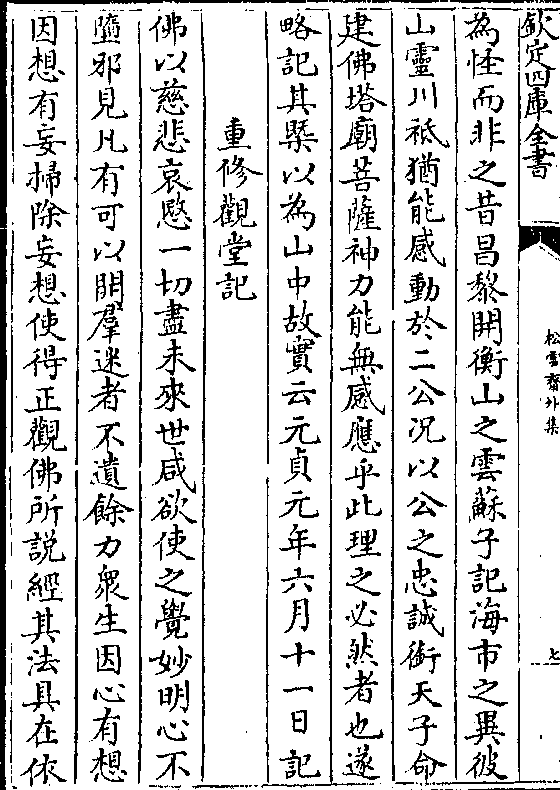 欽定四庫全書
松雪齋外集
七
為怪而非之昔昌黎開衡山之雲蘇子記海市之異彼
山靈川祗猶能感動於二公况以公之忠誠銜天子命
建佛塔廟菩薩神力能無感應乎此理之必然者也遂
略記其槩以為山中故實云元貞元年六月十一日記
重修觀堂記
佛以慈悲哀愍一切盡未來世咸欲使之覺妙明心不
墮邪見凡有可以開羣迷者不遺餘力衆生因心有想
因想有妄掃除妄想使得正觀佛所説經其法具在依